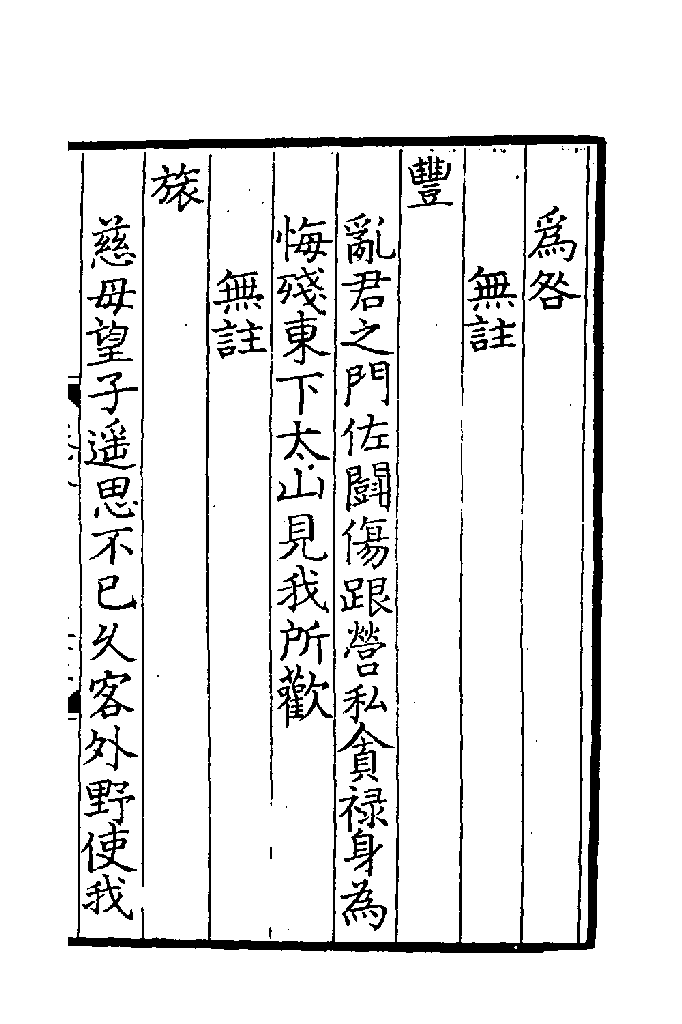 爲咎
無註
豐
亂君之門佐鬭傷跟營私貪禄身為
悔殘東下太山見我所歡
無註
旅
慈母望子遥思不已乆客外野使我